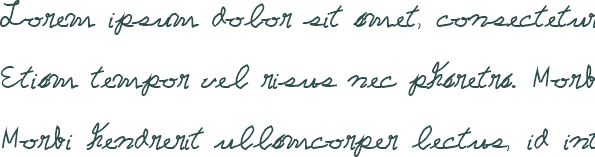 Lorem ipsum dolor sit amet, consectetur
Etiam tempor vel risus nec pharetra. Morb
Morbi hendrerit ullamcorper lectus, id int